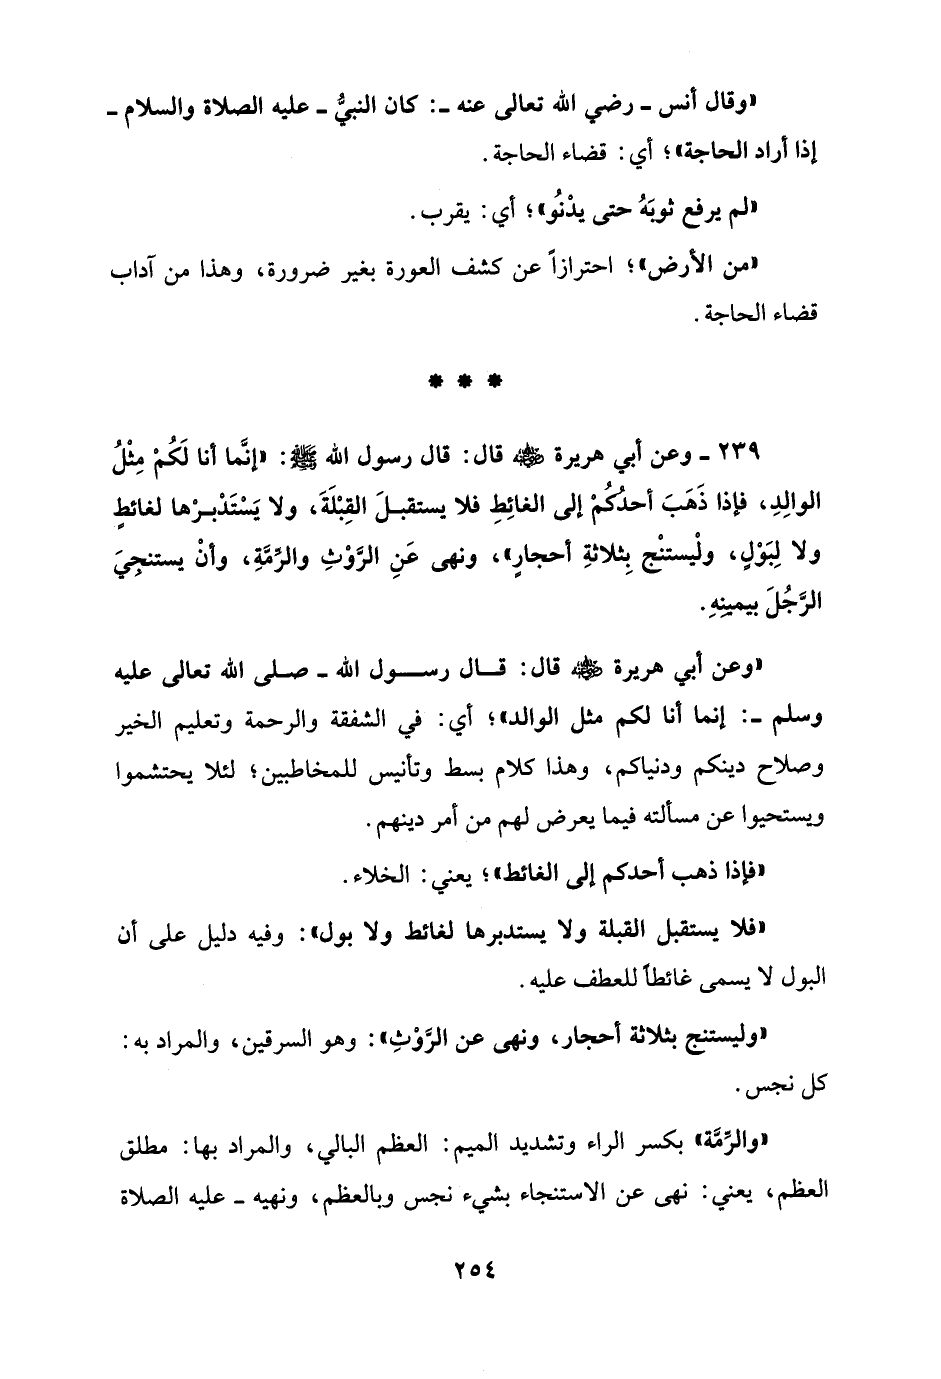 «وقال أنس ـ رضي الله تعالى عنه ـ: كان النبيُّ ـ عليه الصلاة والسلام ـ
إذا أراد الحاجة»؛ أي: قضاء الحاجة.
«لم يرفع ثوبَهُ حتى يدْنُو»؛ أي: يقرب.
«من الأرض»؛ احترازاً عن كشف العورة بغير ضرورة، وهذا من آداب
قضاء الحاجة.
* * *
٢٣٩ ـ وعن أبي هريرة ﵁ قال: قال رسول الله ﷺ: «إنَّما أنا لَكُمْ مِثْلُ
الوالِدِ، فإذا ذَهَبَ أحدُكُمْ إلى الغائِطِ فلا يستقبلَ القِبْلَةَ، ولا يَسْتَدْبرْها لغائطٍ
ولا لِبَوْلٍ، ولْيستنْجِ بِثلاثةِ أحجارٍ»، ونهى عَنِ الرَّوْثِ والرِّمَّةِ، وأنْ يستنجِيَ
الرَّجُلَ بيمينِهِ.
«وعن أبي هريرة ﵁ قال: قال رسول الله ـ صلى الله تعالى عليه
وسلم ـ: إنما أنا لكم مثل الوالد»؛ أي: في الشفقة والرحمة وتعليم الخير
وصلاح دينكم ودنياكم، وهذا كلام بسط وتأنيس للمخاطبين؛ لئلا يحتشموا
ويستحيوا عن مسألته فيما يعرض لهم من أمر دينهم.
«فإذا ذهب أحدكم إلى الغائط»؛ يعني: الخلاء.
«فلا يستقبل القبلة ولا يستدبرها لغائط ولا بول»: وفيه دليل على أن
البول لا يسمى غائطاً للعطف عليه.
«وليستنج بثلاثة أحجار، ونهى عن الرَّوْثِ»: وهو السرقين، والمراد به:
كل نجس.
«والرِّمَّة» بكسر الراء وتشديد الميم: العظم البالي، والمراد بها: مطلق
العظم، يعني: نهى عن الاستنجاء بشيء نجس وبالعظم، ونهيه ـ عليه الصلاة
٢٥٤